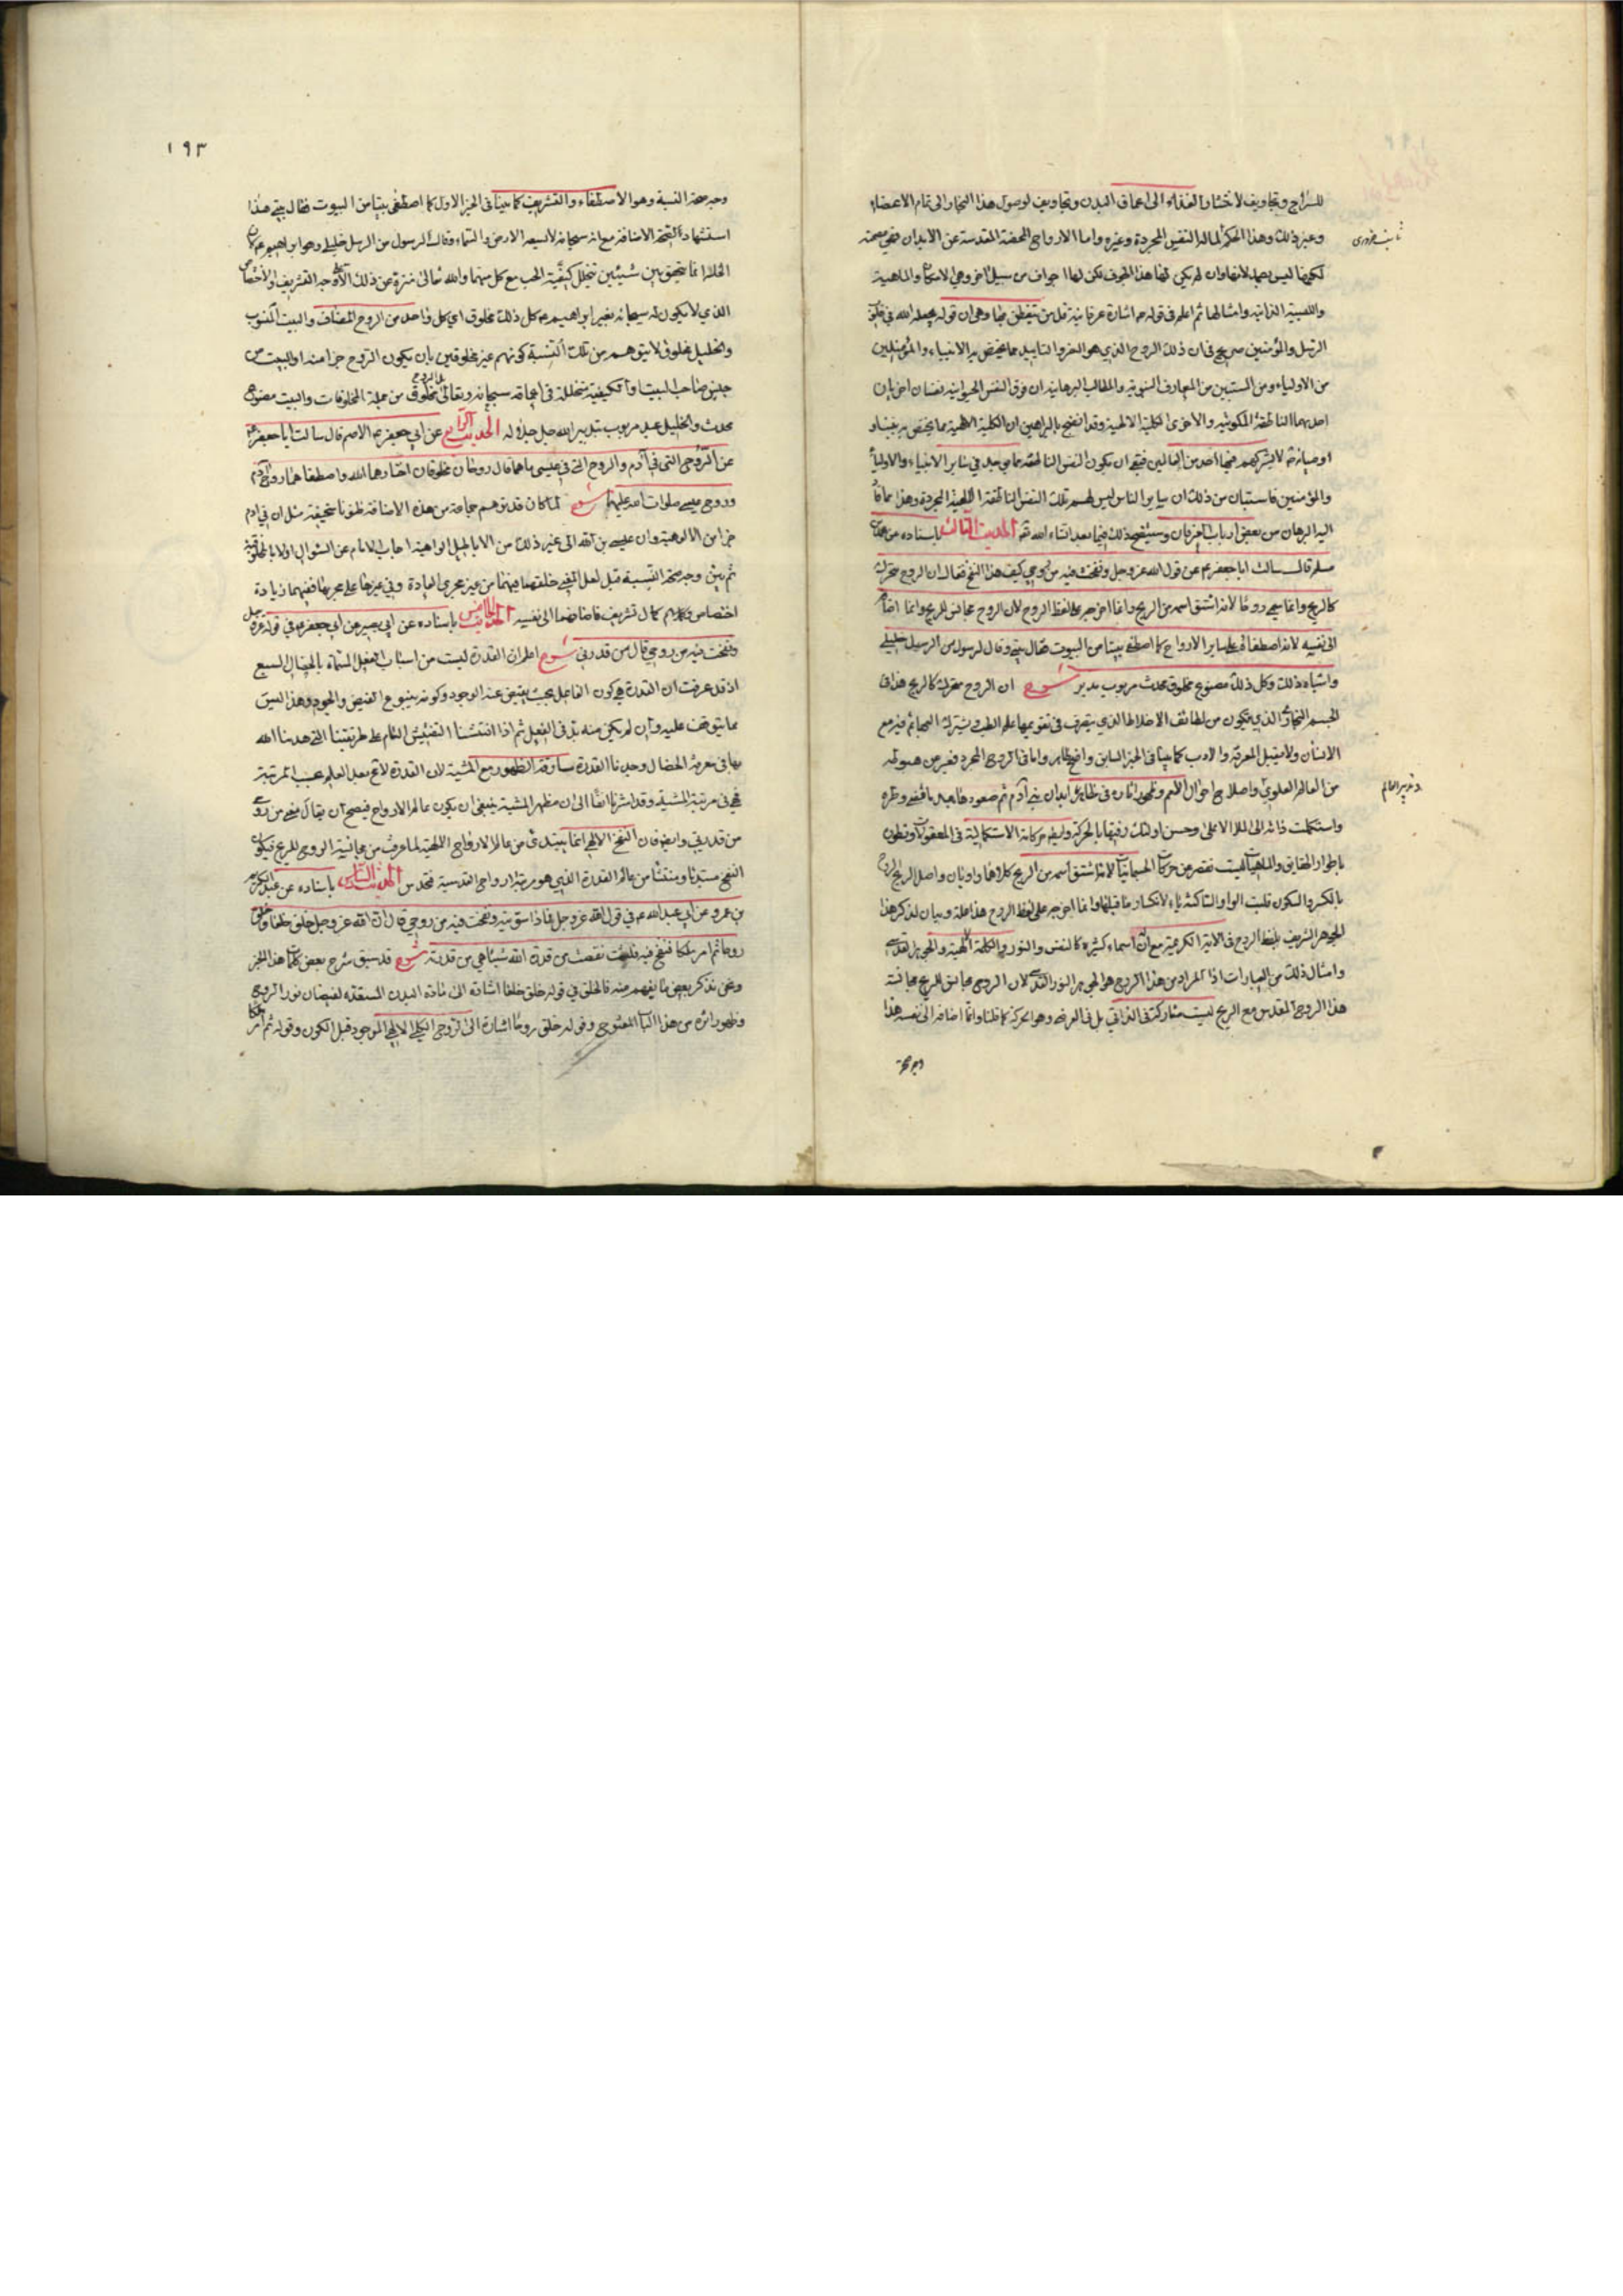 للسراج وتجاويف لاحشاء الغذاء الى اعماق البدن وتجاويف لوصول هذا البخار الى تمام الاعضاء
وغير ذلك وهذا الحكم لماله النفس المجردة وغيره واما الارواح المحضة المقدسة عن الابدان فهي مصمتة
لكونها ليس لها وان لم يكن لها هذا الجوف لكن لها اجواف من سبيل اخر وهي الامكان والماهية
والليسية الذاتية وامثالها ثم اعلم في قوله اشارة عرفانية قل من تفطن بها وهي ان قوله يجعله الله في قلوب
الرسل والمؤمنين صريح في ان ذلك الروح الذي هو العز والتاييد مما يختص به الانبياء والمؤمنين
من الاولياء ومن المستبين من المعارف النبوية والمطالب البرهانية ان فوق النفس الحيوانية نفسان اخريان
احدهما الناطقة الملكوتية والاخرى الكلية الالهية وقد اتضح بالبراهين ان الكلية الالهية مما يختص به نبينا و
اوصيائه لا يشركهم فيها احد من العالمين فبقي ان يكون النفس الناطقة مما يوجد في سائر الانبياء والاولياء
والمؤمنين فاستبان من ذلك ان سائر الناس ليس لهم تلك النفس الناطقة المجردة وهذا مما قاد
اليه البرهان من بعض ارباب العرفان وسيتضح ذلك فيما بعد انشاء الله الحديث الثالث باسناده عن محمد بن
مسلم قال سالت ابا جعفر ع عن قول الله عز وجل ونفخت فيه من روحي كيف هذا النفخ فقال ان الروح متحرك
كالريح وانما سمي روحا لانه اشتق اسمه من الريح وانما اخرجه على لفظ الروح لان الروح مجانس للريح وانما اضافه
الى نفسه لانه اصطفاه على سائر الارواح كما اصطفى بيتا من البيوت فقال بيتي وقال لرسول من الرسل خليلي
واشباه ذلك وكل ذلك مصنوع مخلوق محدث مربوب مدبر شرح ان الروح متحرك كالريح هذا في
الجسم البخاري الذي يتكون من لطائف الاخلاط الذي يتصرف في تقويمها علم الطب ويشترك البهائم فيه مع
الانسان ولا يقبل المعرفة والادب كما بينا في الخبر السابق واضح ظاهر واما في الروح المجرد فغير من هبوطه
من العالم العلوي واصلاح احوال الامم وظهور اثاره في ابدان بني آدم ثم صعوده
واستكملت ذاته الى الملا الاعلى وحسن اولئك رفيقا بالحركة وايضا حركاته الاستكمالية في المعقولات وتطوره
باطوار الحقايق والماهيات ليست تقصر عن حركات الجسمانيات لانه اشتق اسمه من الريح كلاهما واويان واصل الريح الروح
بالكسر والسكون قلبت الواو الساكنة ياء لانكسار ما قبلها وانما اخرجه على لفظ الروح هذا علة وبيان لذكر هذا
الجوهر الشريف بلفظ الروح في الاية الكريمة مع ان له اسماء كثيرة كالنفس والنور والكلمة الالهية والجوهر القدسي
وامثال ذلك من العبارات اذ المراد من هذا الروح هو الجوهر النور القدسي لان الروح مجانس للريح مجانسة
هذا الروح المقدس مع الريح ليست مشاركة في الذاتي بل في العرض وهو الحركة كما قلنا وانما اضافه الى نفسه هذا
١٩٣
وجه صحة النسبة وهو الاصطفاء والتشريف كما بينا في الخبر الاول كما اصطفى بيتا من البيوت فقال بيتي هذا
استشهاد لصحة الاضافة مع انه سبحانه لا يسعه الارض والسماء وقال لرسول من الرسل خليلي وهو ابراهيم ع لان
الخلة انما يتحقق بين شيئين يتخلل كيفية الحب مع كل منهما والله تعالى منزه عن ذلك الا لوجه التشريف والاختصاص
الذي لا يكون له سبحانه بغير ابراهيم ع كل ذلك مخلوق اي كل واحد من الروح المضاف والبيت المنسوب
والخليل مخلوق لا يتوهم من تلك النسبة كونهم غير مخلوقين بان يكون الروح جزءا منه او البيت من
جنس صاحب البيت او الكيفية متخللة في اعماقه سبحانه وتعالى فالروح مخلوق من جملة المخلوقات والبيت مصنوع
محدث والخليل عبد مربوب بتدبير الله جل جلاله الحديث الرابع عن ابي جعفر الاصم قال سالت ابا جعفر ع
عن الروح التي في آدم والروح التي في عيسى ما هما قال روحان مخلوقان اختارهما الله واصطفاهما روح آدم
وروح عيسى صلوات الله عليهما شرح لما كان قد توهم جماعة من هذه الاضافة ظنونا سخيفة مثل ان في ادم
جزء من الالوهية وان عيسى بن الله الى غير ذلك من الاباطيل الواهية اجاب الامام عن السؤال اولا بالمخلوقية
ثم بين وجه صحة النسبة قيل لعل المعنى خلقهما من غير مجرى العادة وفي غيرها على مجريها ففيهما زيادة
اختصاص وكمال تشريف فاضافهما الى نفسه الحديث الخامس باسناده عن ابي بصير عن ابي جعفر ع في قوله عز وجل
ونفخت فيه من روحي قال من قدرتي شرح اعلم ان القدرة ليست من اسباب الفعل لانها بالخصال السبع
اذ قد عرفت ان القدرة هي كون الفاعل بحيث يفيض عنه الوجود وكونه ينبوع الفيض والجود وهذا ليس
مما يتوقف عليه وان لم يكن منه بد في الفعل ثم اذا فتشنا التفتيش التام على طريقتنا التي هدينا الله
بها في معرفة الخصال وجدنا القدرة مساوقة الظهور مع المشية لان القدرة لا تقع بعد العلم بحسب المرتبة
فهي في مرتبة المشية وقد اشرنا آنفا الى ان مظهر المشية ينبغي ان يكون عالم الارواح فيصح ان يقال نفخ من روحي
من قدرتي وايضا فان النفخ الالهي انما يبتدئ من عالم الارواح الالهية لما عرفت من مجانسة الروح للريح فيكون
النفخ مبتدئا ومنشئا من عالم القدرة الذي هو مرتبة ارواح القدسية فتحدس الحديث السادس باسناده عن عبد الكريم
بن عمرو عن ابي عبد الله ع في قول الله عز وجل فاذا سويته ونفخت فيه من روحي قال ان الله عز وجل خلق خلقا وخلق
روحا ثم امر ملكا فنفخ فيه فليست نقصت من قدرة الله شيئا هي من قدرته شرح قد سبق شرح بعض كلمات هذا الخبر
ونحن نذكر بعض ما يفهم منه فالخلق في قوله خلق خلقا اشارة الى مادة البدن المستعدة لفيضان نور الروح
وظهور اثره من هذا الباب المفتوح وقوله خلق روحا اشارة الى الروح الكلي الالهي الموجود قبل الكون وقوله ثم امر ملكا